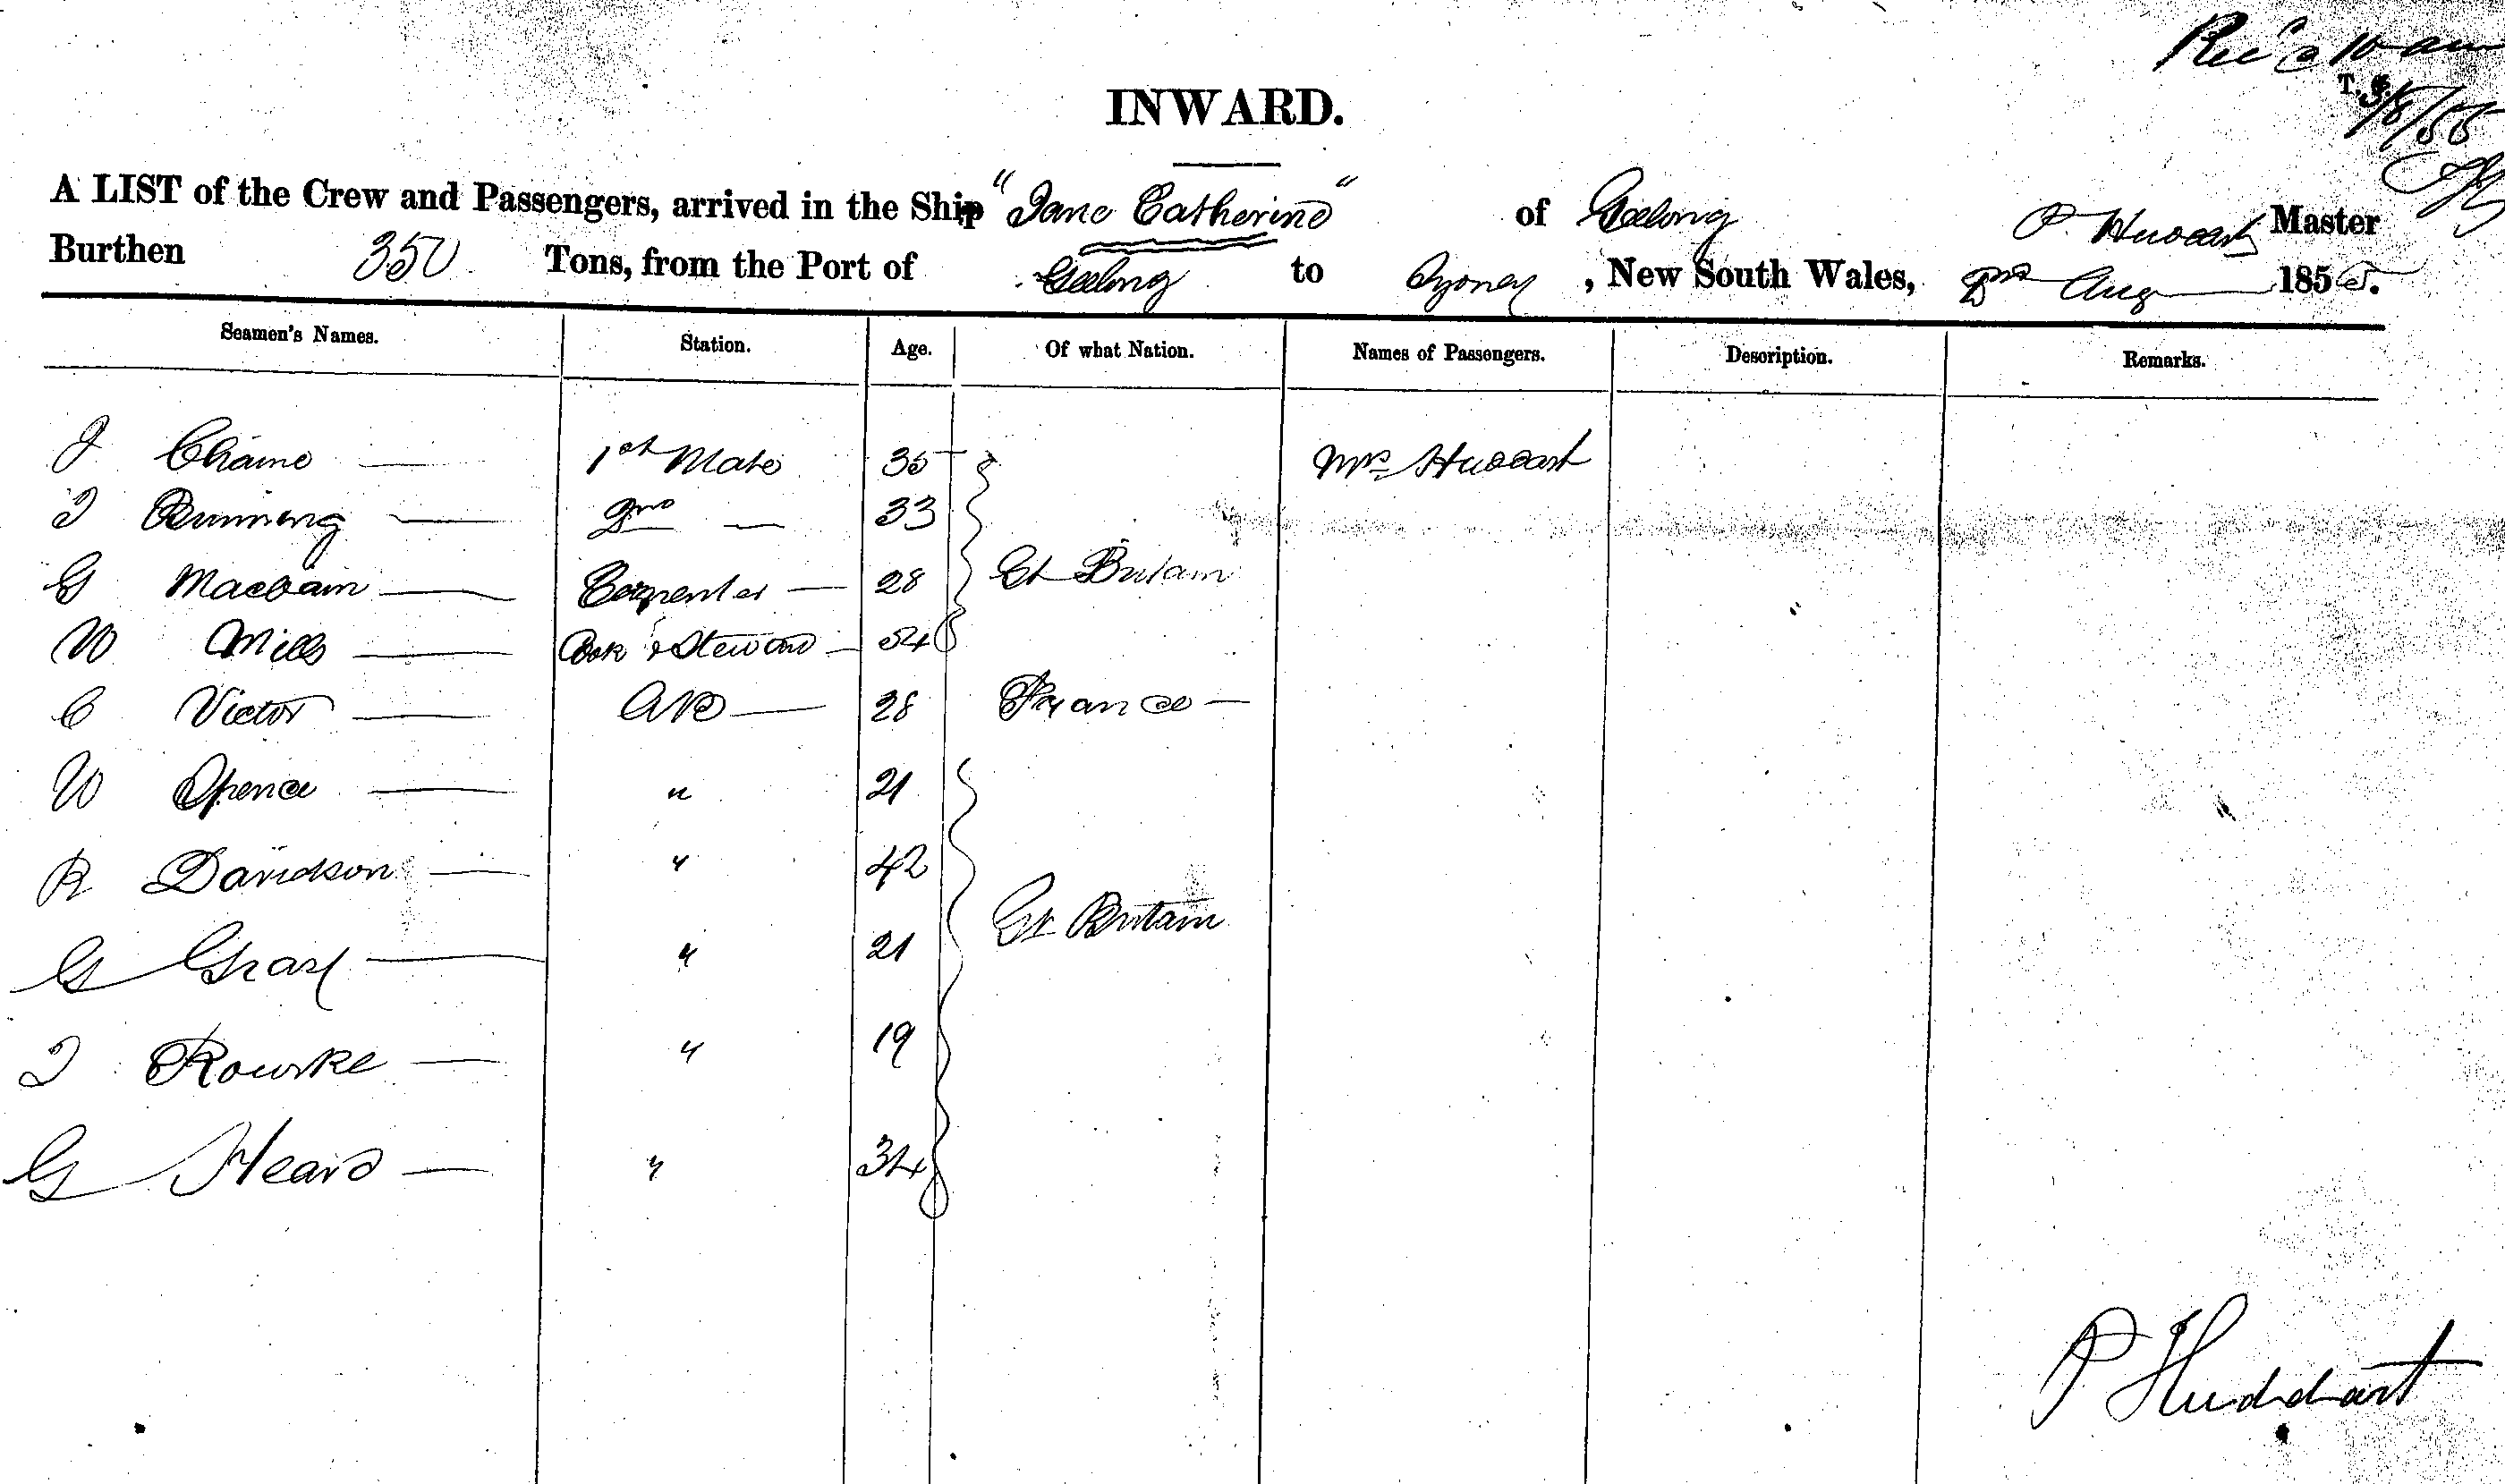 Rec'd 10 am
T. 3/8/55
INWARD.
A LIST of the Crew and Passengers, arrived in the Ship "Jane Catherine" of Geelong P Huddart Master
Burthen 350 Tons, from the Port of Geelong to Sydney, New South Wales, 2nd Aug 1855.
Seamen's Names. Station. Age. Of what Nation. Names of Passengers. Description. Remarks.
J 1st Mate 35 Mrs Huddart
J 2nd — 33
G Macbain Carpenter 28 Gt Britain
W Mills Cook & Steward 54
C Victor AB 28 France
W Spence " 21
R Davidson " 42
G Gray " 21 Gt Britain
J Rourke " 19
G Heard " 34
P Huddart